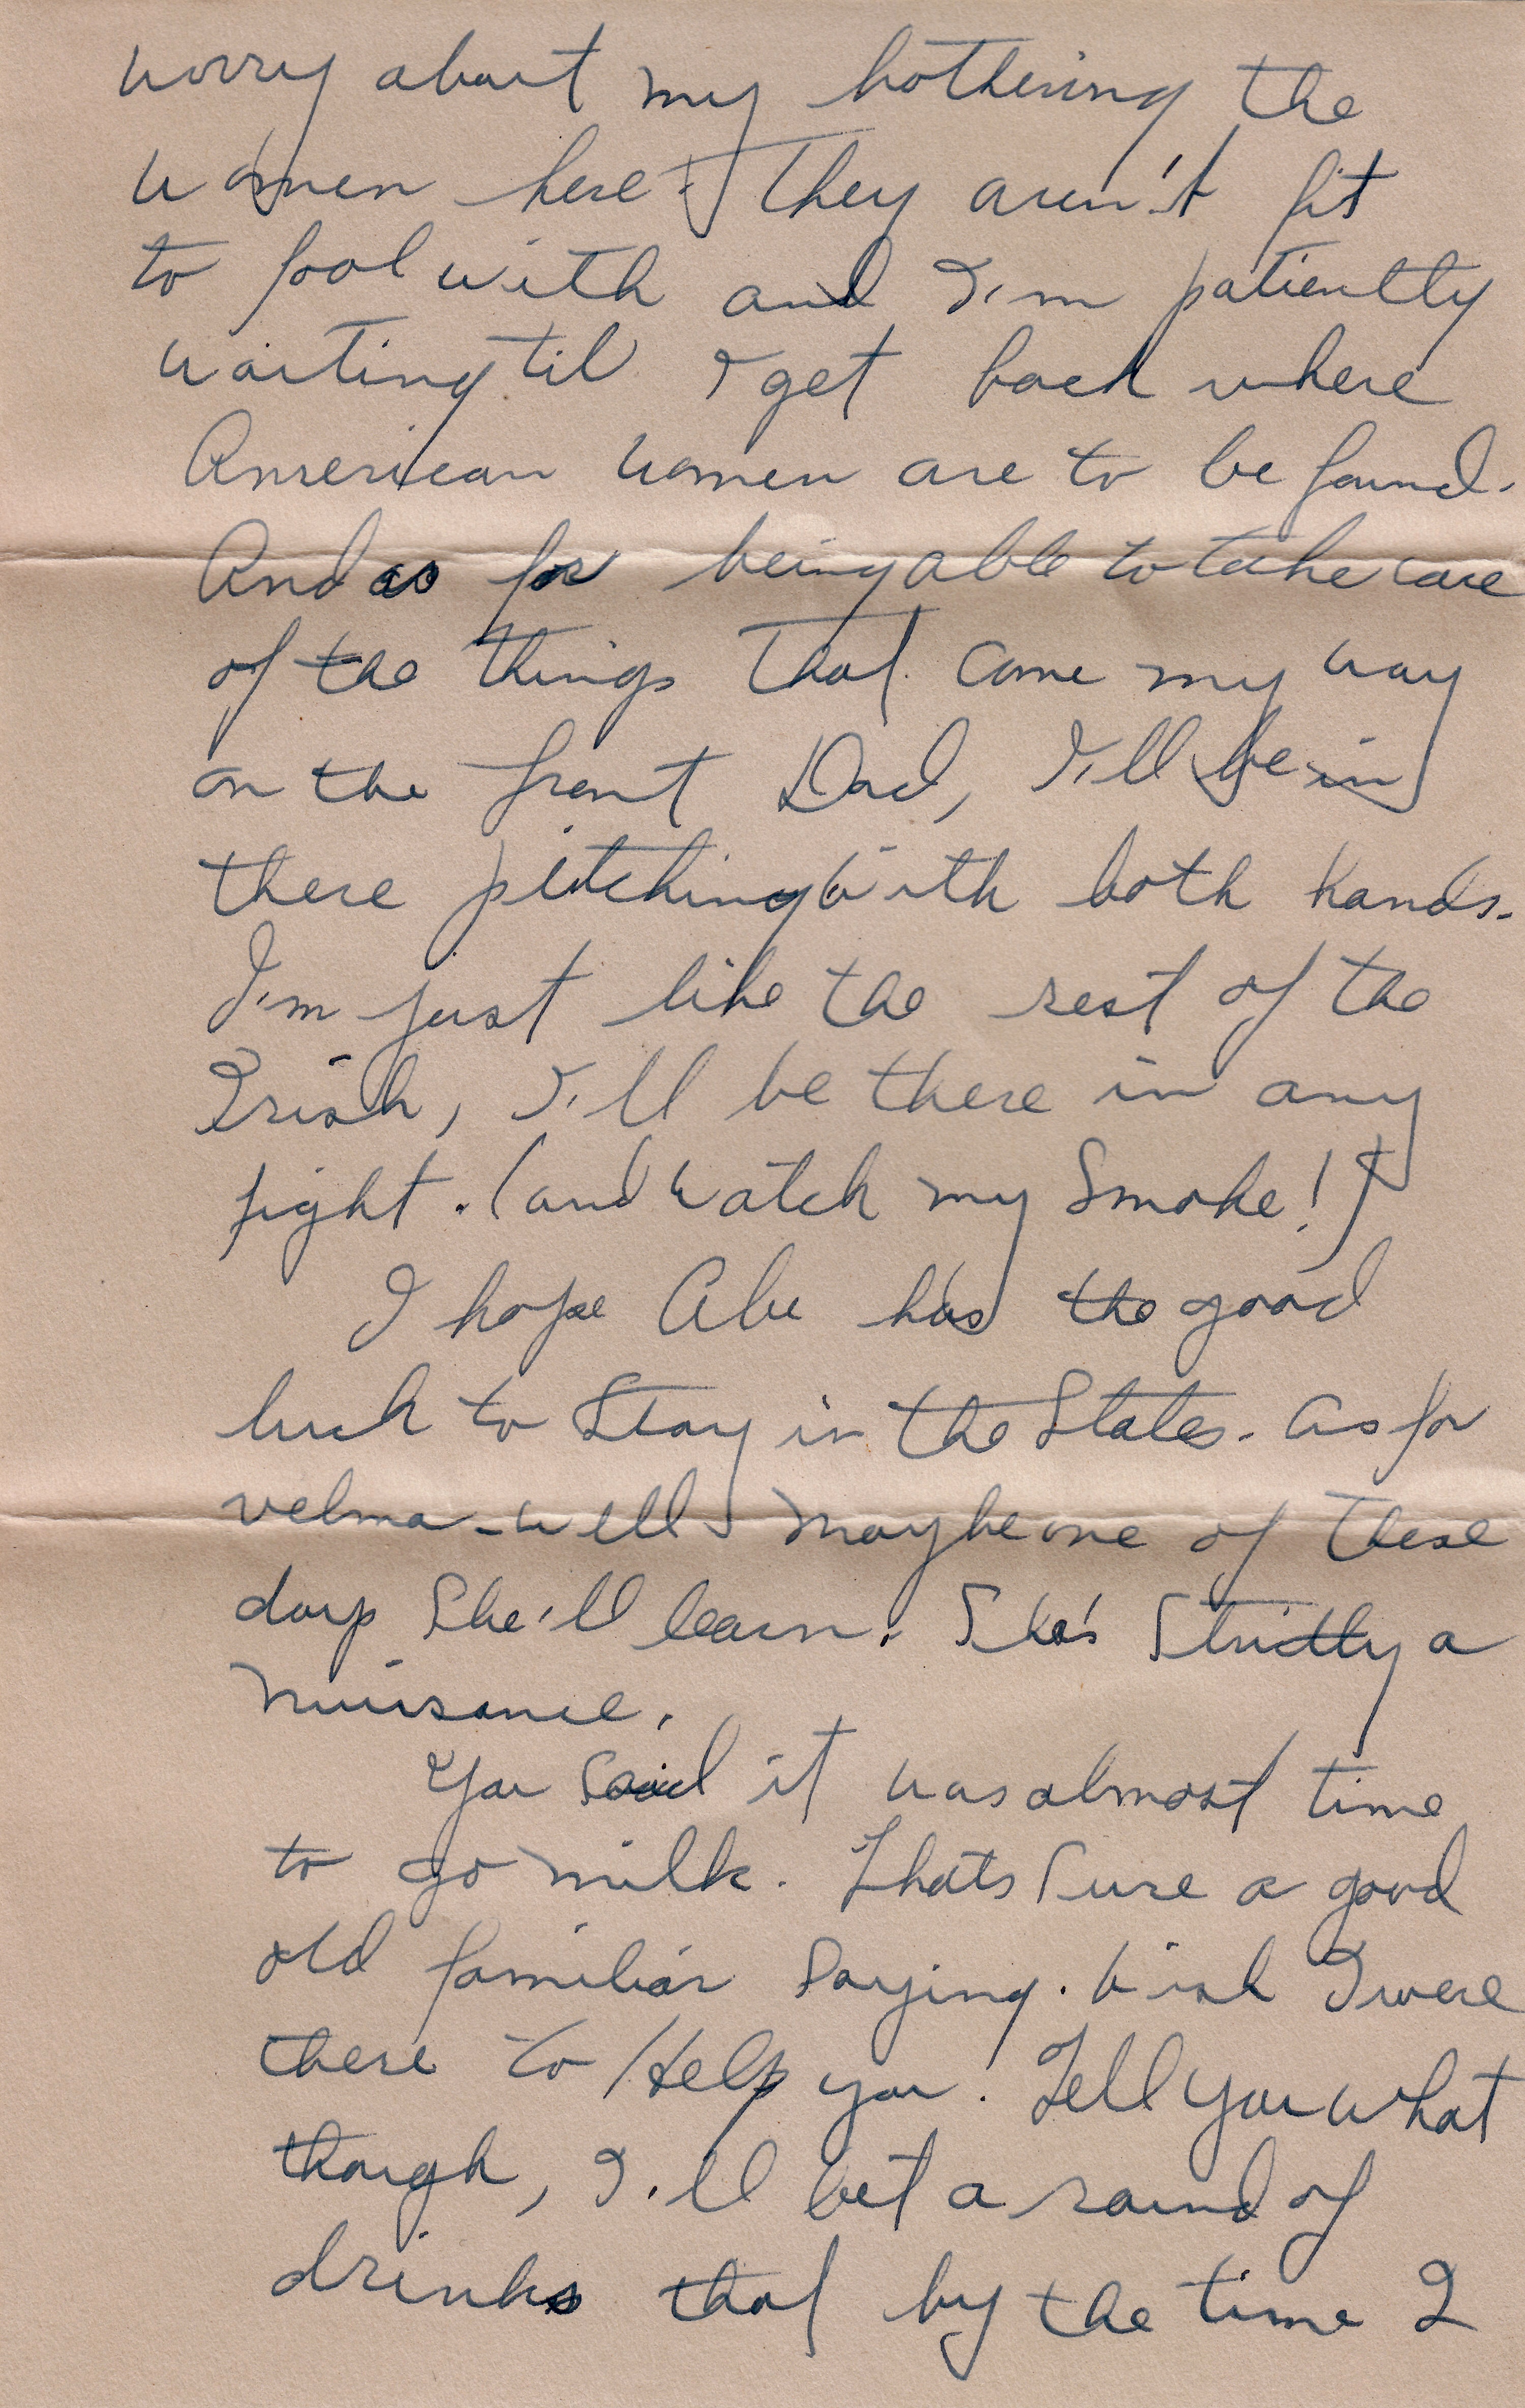 worry about my bothering the
women here. They aren't fit
to fool with and I'm patiently
waiting til I get back where
American women are to be found.
And as for being able to take care
of the things that come my way
on the front Dad, I'll be in
there pitching with both hands.
I'm just like the rest of the
Irish, I'll be there in any
fight. (and watch my Smoke!)
I hope Abe has the good
luck to Stay in the States. As for
Velma - well maybe one of these
days She'll learn. She's Strictly a
nuisance.
You Said it was almost time
to go milk. Thats Sure a good
old familiar Saying. Wish I were
there to Help you. Tell you what
though, I'll bet a round of
drinks that by the time I